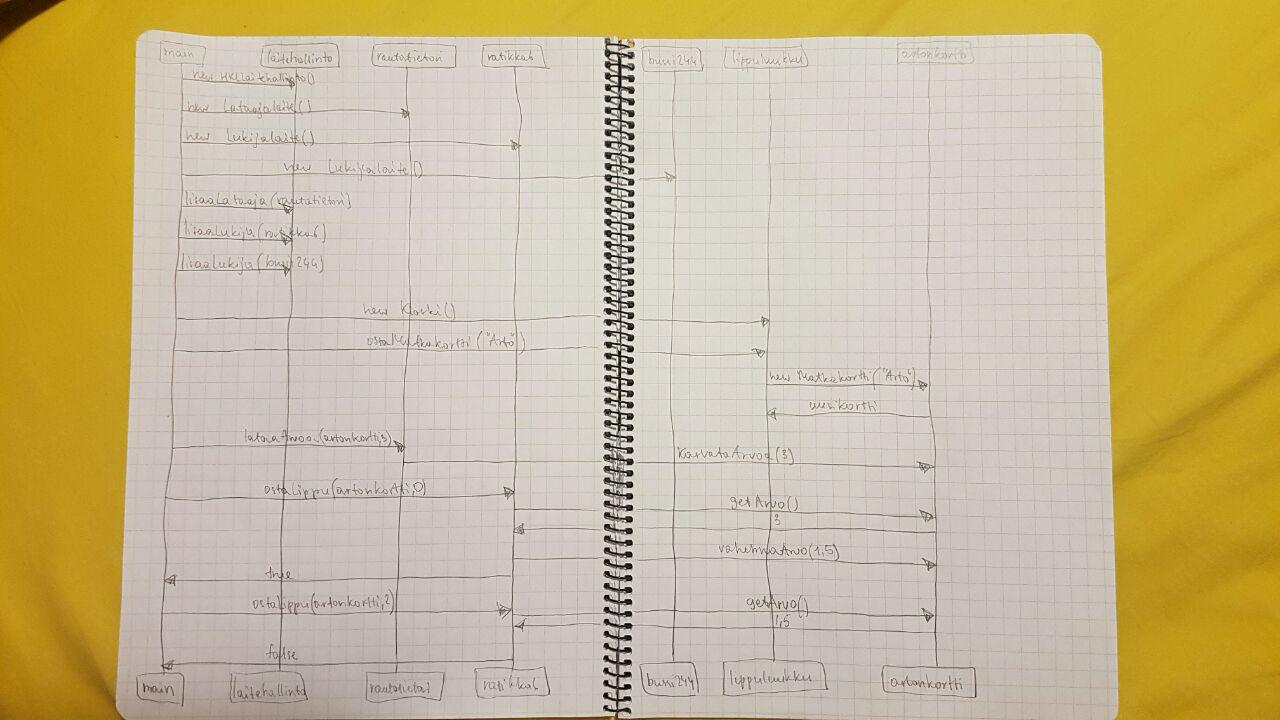 main laitehallinto rautatietori ratikka6 bussi244 lippuluukku artonkortti
new HKLLaitehallinto()
new Lataajalaite()
new Lukijalaite()
new Lukijalaite()
lisaaLataaja(rautatietori)
lisaaLukija(ratikka6)
lisaaLukija(bussi244)
new Kioski()
ostaMatkakortti("Arto")
new Matkakortti("Arto")
uusikortti
lataaArvoa(artonkortti,3)
kasvataArvoa(3)
ostaLippu(artonkortti,0)
getArvo()
3
vahennaArvo(1,5)
true
ostaLippu(artonkortti,2)
getArvo()
1,5
false
main laitehallinto rautatietori ratikka6 bussi244 lippuluukku artonkortti